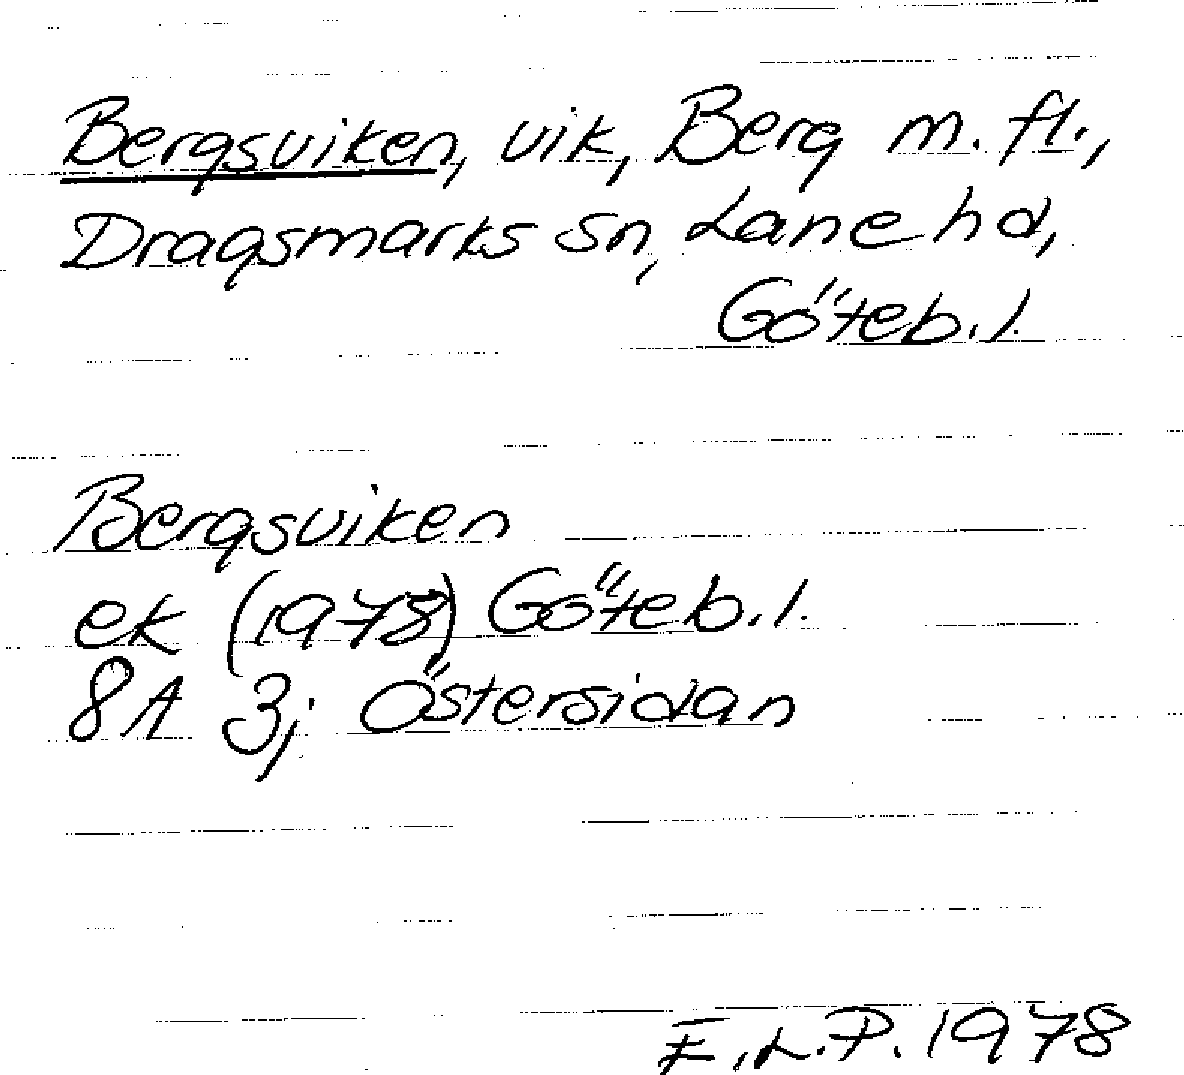 Bergsviken, vik, Berg m. fl.,
Dragsmarks sn, Lane hd,
Göteb. l.
Bergsviken
ek (1978) Göteb. l.
8A 3; Östersidan
E.L.P. 1978